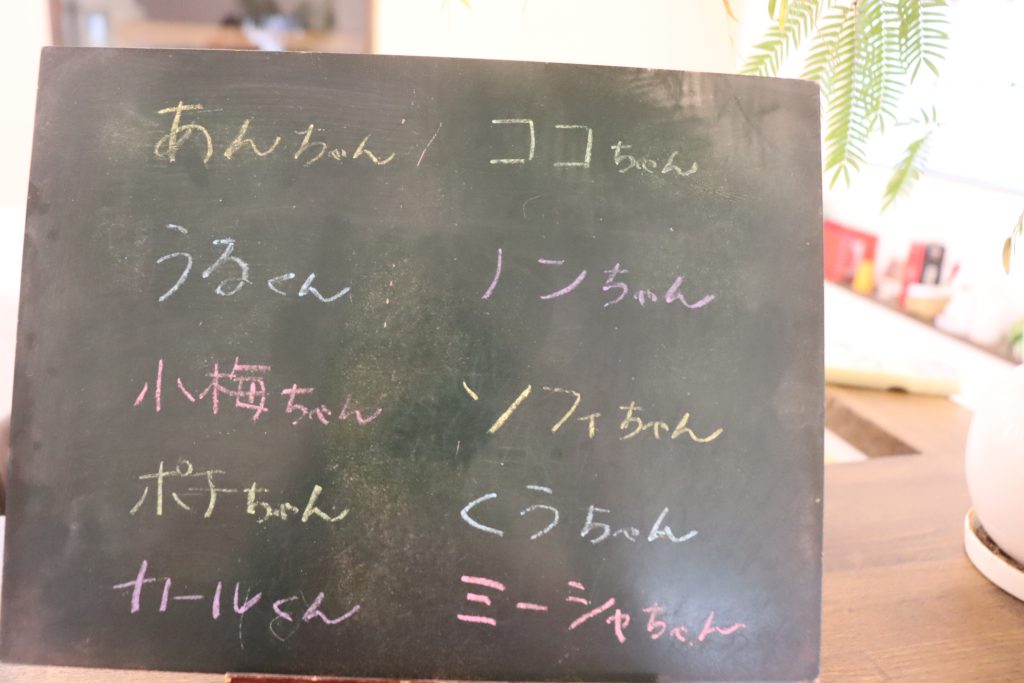 あんちゃん ココちゃん
うるくん ノンちゃん
小梅ちゃん ソフィちゃん
ポチちゃん くうちゃん
ナトールくん ミーシャちゃん